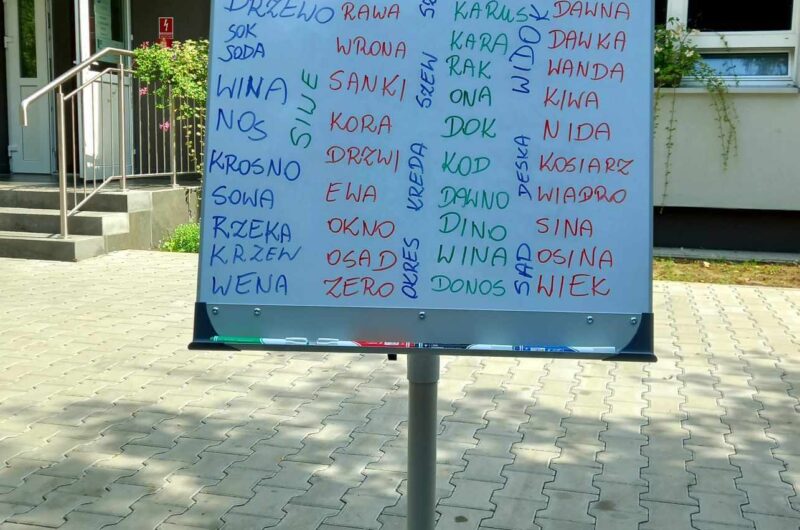 DRZEWO
SOK
SODA
WINA
NOS
KROSNO
SOWA
RZEKA
KRZEW
WENA
SIWE
RAWA
WRONA
SANKI
KORA
DRZWI
EWA
OKNO
OSAD
ZERO
SZEW
KREDA
OKRES
KARUS
KARA
RAK
ONA
DOK
KOD
DAWNO
DINO
WINA
DONOS
WIDOK
DESKA
SAD
DAWNA
DAWKA
WANDA
KIWA
NIDA
KOSIARZ
WIADRO
SINA
OSINA
WIEK